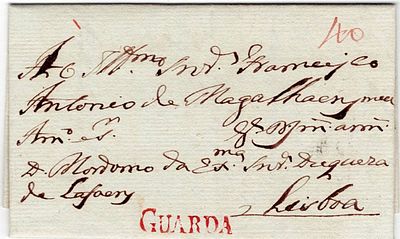 40
Ao Illmo Snr. Francisco
Antonio de Magalhaens meu
Amo. e Sr.
D. Mordomo da Exma Snra. Duqueza
de Lafoens
Lisboa
GUARDA